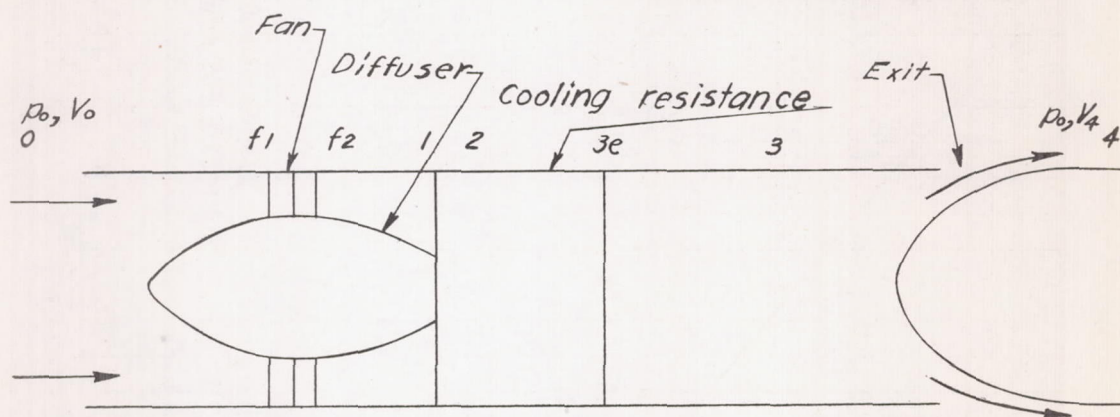 Fan
Diffuser
Cooling resistance
Exit
p₀, V₀
0
f1
f2
1
2
3e
3
p₀, V₄
4